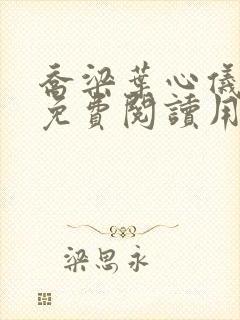 喬梁葉心儀
免費閱讀用
梁思永